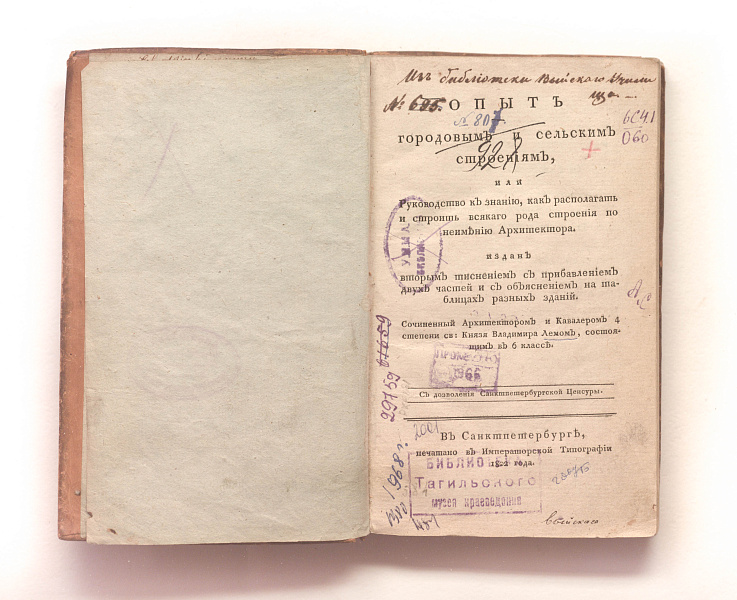 Изъ библіотеки Выйскаго Учили
ща.
№ 695.
ОПЫТЪ
№ 807
6С41
060
городовымъ и сельскимъ
928
строеніямъ,
или
Руководство къ знанію, какъ располагать
и строить всякаго рода строенія по
неимѣнію Архитектора.
изданъ
вторымъ тисненіемъ съ прибавленіемъ
двухъ частей и съ объясненіемъ на та-
блицахъ разныхъ зданій.
Сочиненный Архитекторомъ и Кавалеромъ 4
степени св: Князя Владимира Лемомъ, состоя-
щимъ въ 6 классѣ.
1966
Съ дозволенія Санктпетербургской Ценсуры.
29759
61659
1968 г.
2001
Въ Санктпетербургѣ,
печатано въ Императорской Типографіи
1822 года.
БИБЛИОТЕКА
Тагильского
музея краеведения